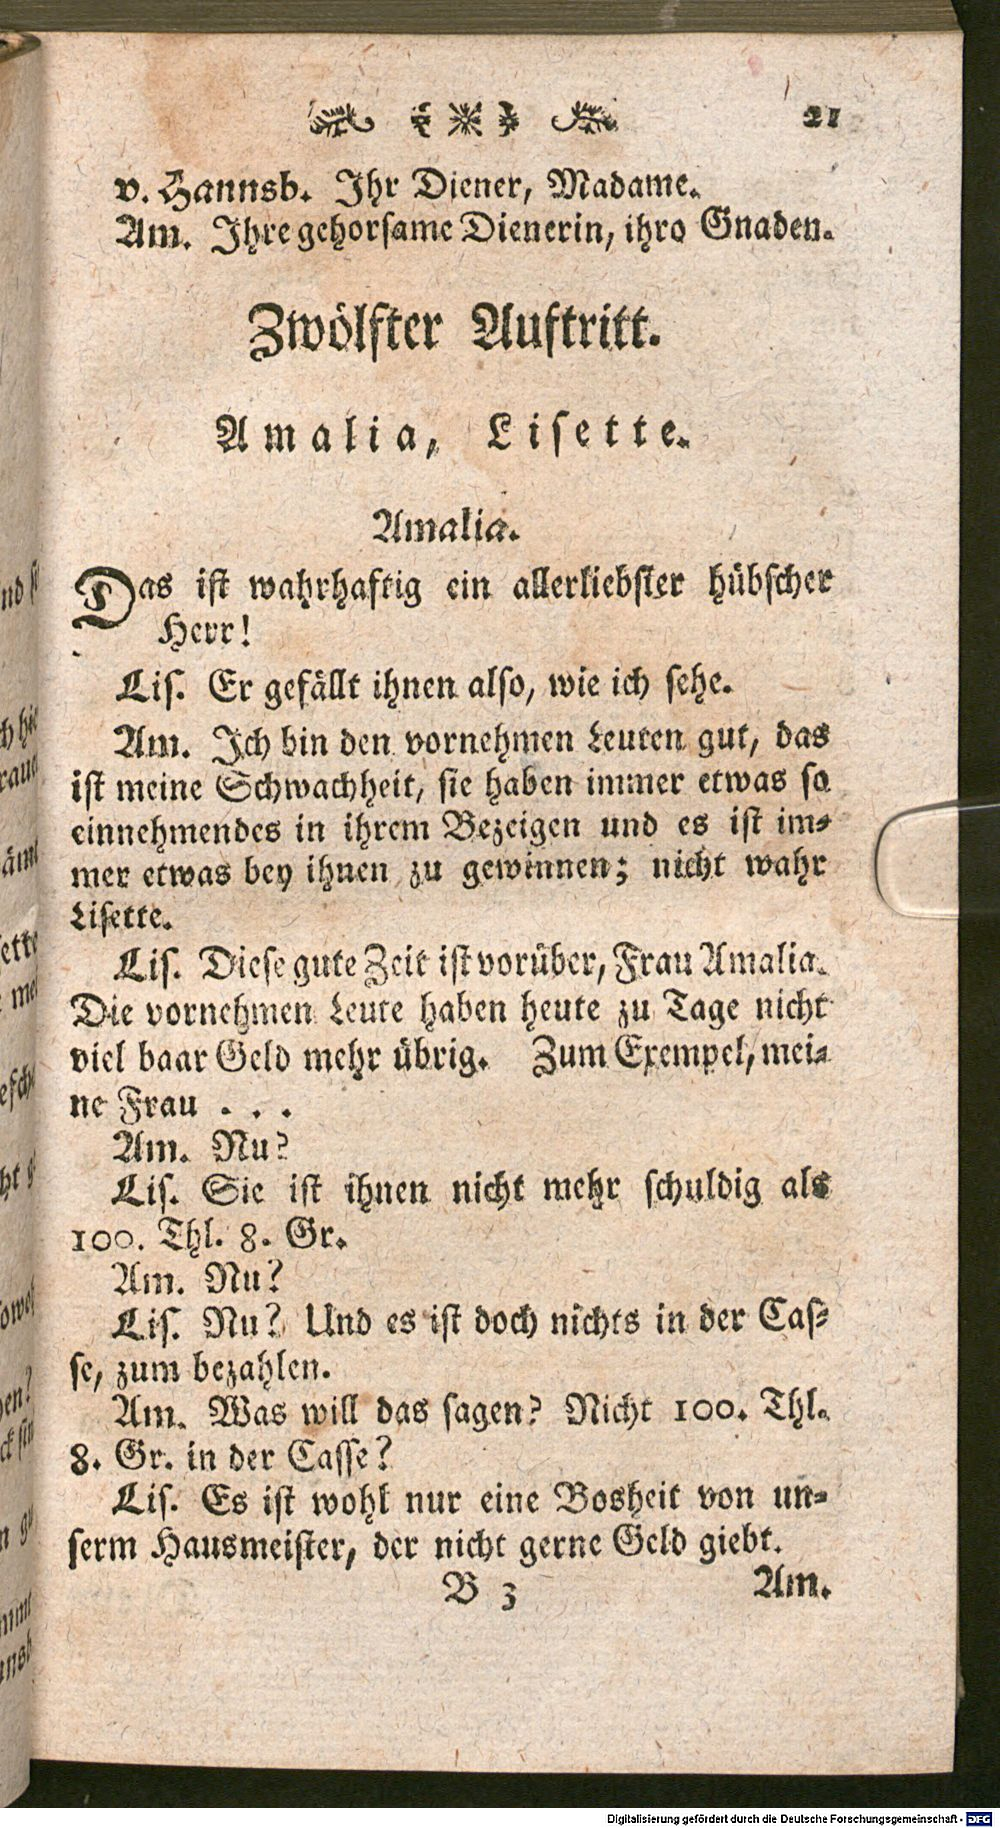 21
v. Hannsb. Ihr Diener, Madame.
Am. Ihre gehorsame Dienerin, ihro Gnaden.
Zwölfter Auftritt.
Amalia, Lisette.
Amalia.
Das ist wahrhaftig ein allerliebster hübscher
Herr!
Lis. Er gefällt ihnen also, wie ich sehe.
Am. Ich bin den vornehmen Leuten gut, das
ist meine Schwachheit, sie haben immer etwas so
einnehmendes in ihrem Bezeigen und es ist im-
mer etwas bey ihnen zu gewinnen; nicht wahr
Lisette.
Lis. Diese gute Zeit ist vorüber, Frau Amalia.
Die vornehmen Leute haben heute zu Tage nicht
viel baar Geld mehr übrig. Zum Exempel, mei-
ne Frau . . .
Am. Nu?
Lis. Sie ist ihnen nicht mehr schuldig als
100. Thl. 8. Gr.
Am. Nu?
Lis. Nu? Und es ist doch nichts in der Cas-
se, zum bezahlen.
Am. Was will das sagen? Nicht 100. Thl.
8. Gr. in der Casse?
Lis. Es ist wohl nur eine Bosheit von un-
serm Hausmeister, der nicht gerne Geld giebt.
B 3 Am.
Digitalisierung gefördert durch die Deutsche Forschungsgemeinschaft - DFG